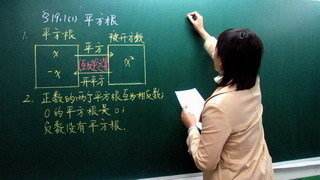 §19.1(1) 平方根
1. 平方根 被开方数
x 平方 x²
-x 互为逆运算
开平方
2. 正数的两个平方根互为相反数；
0的平方根是0；
负数没有平方根.